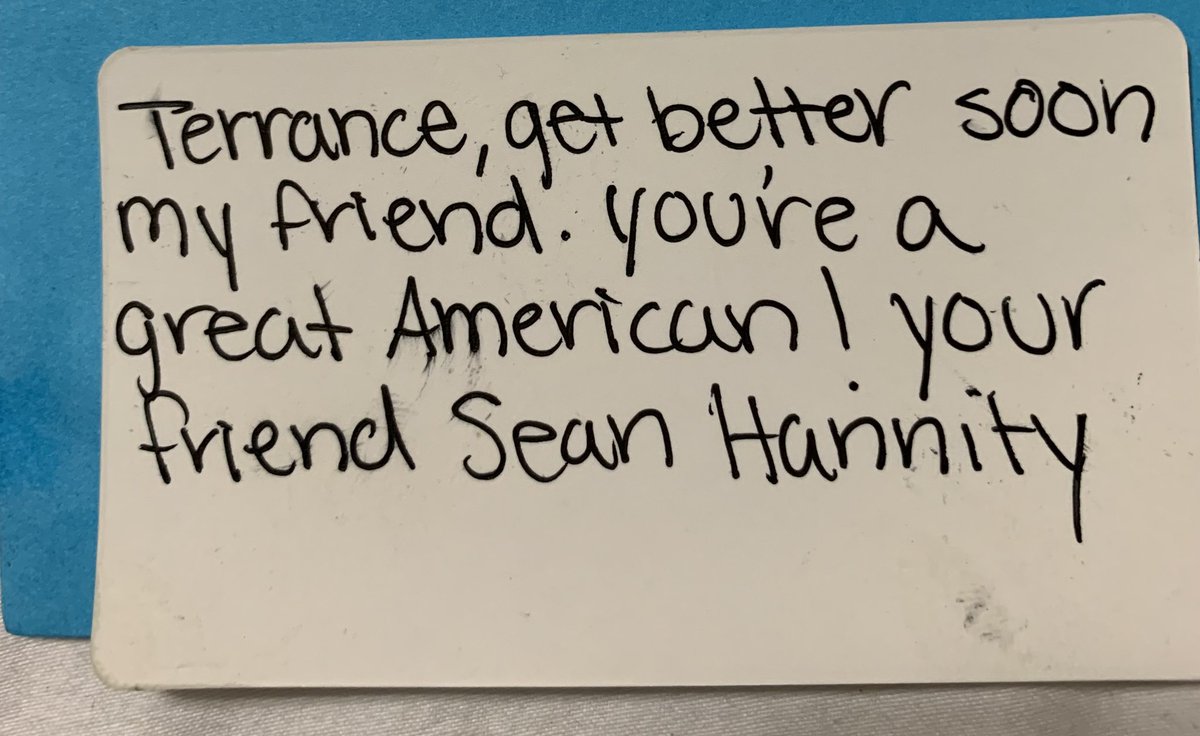 Terrance, get better soon
my friend. you're a
great American! your
friend Sean Hannity